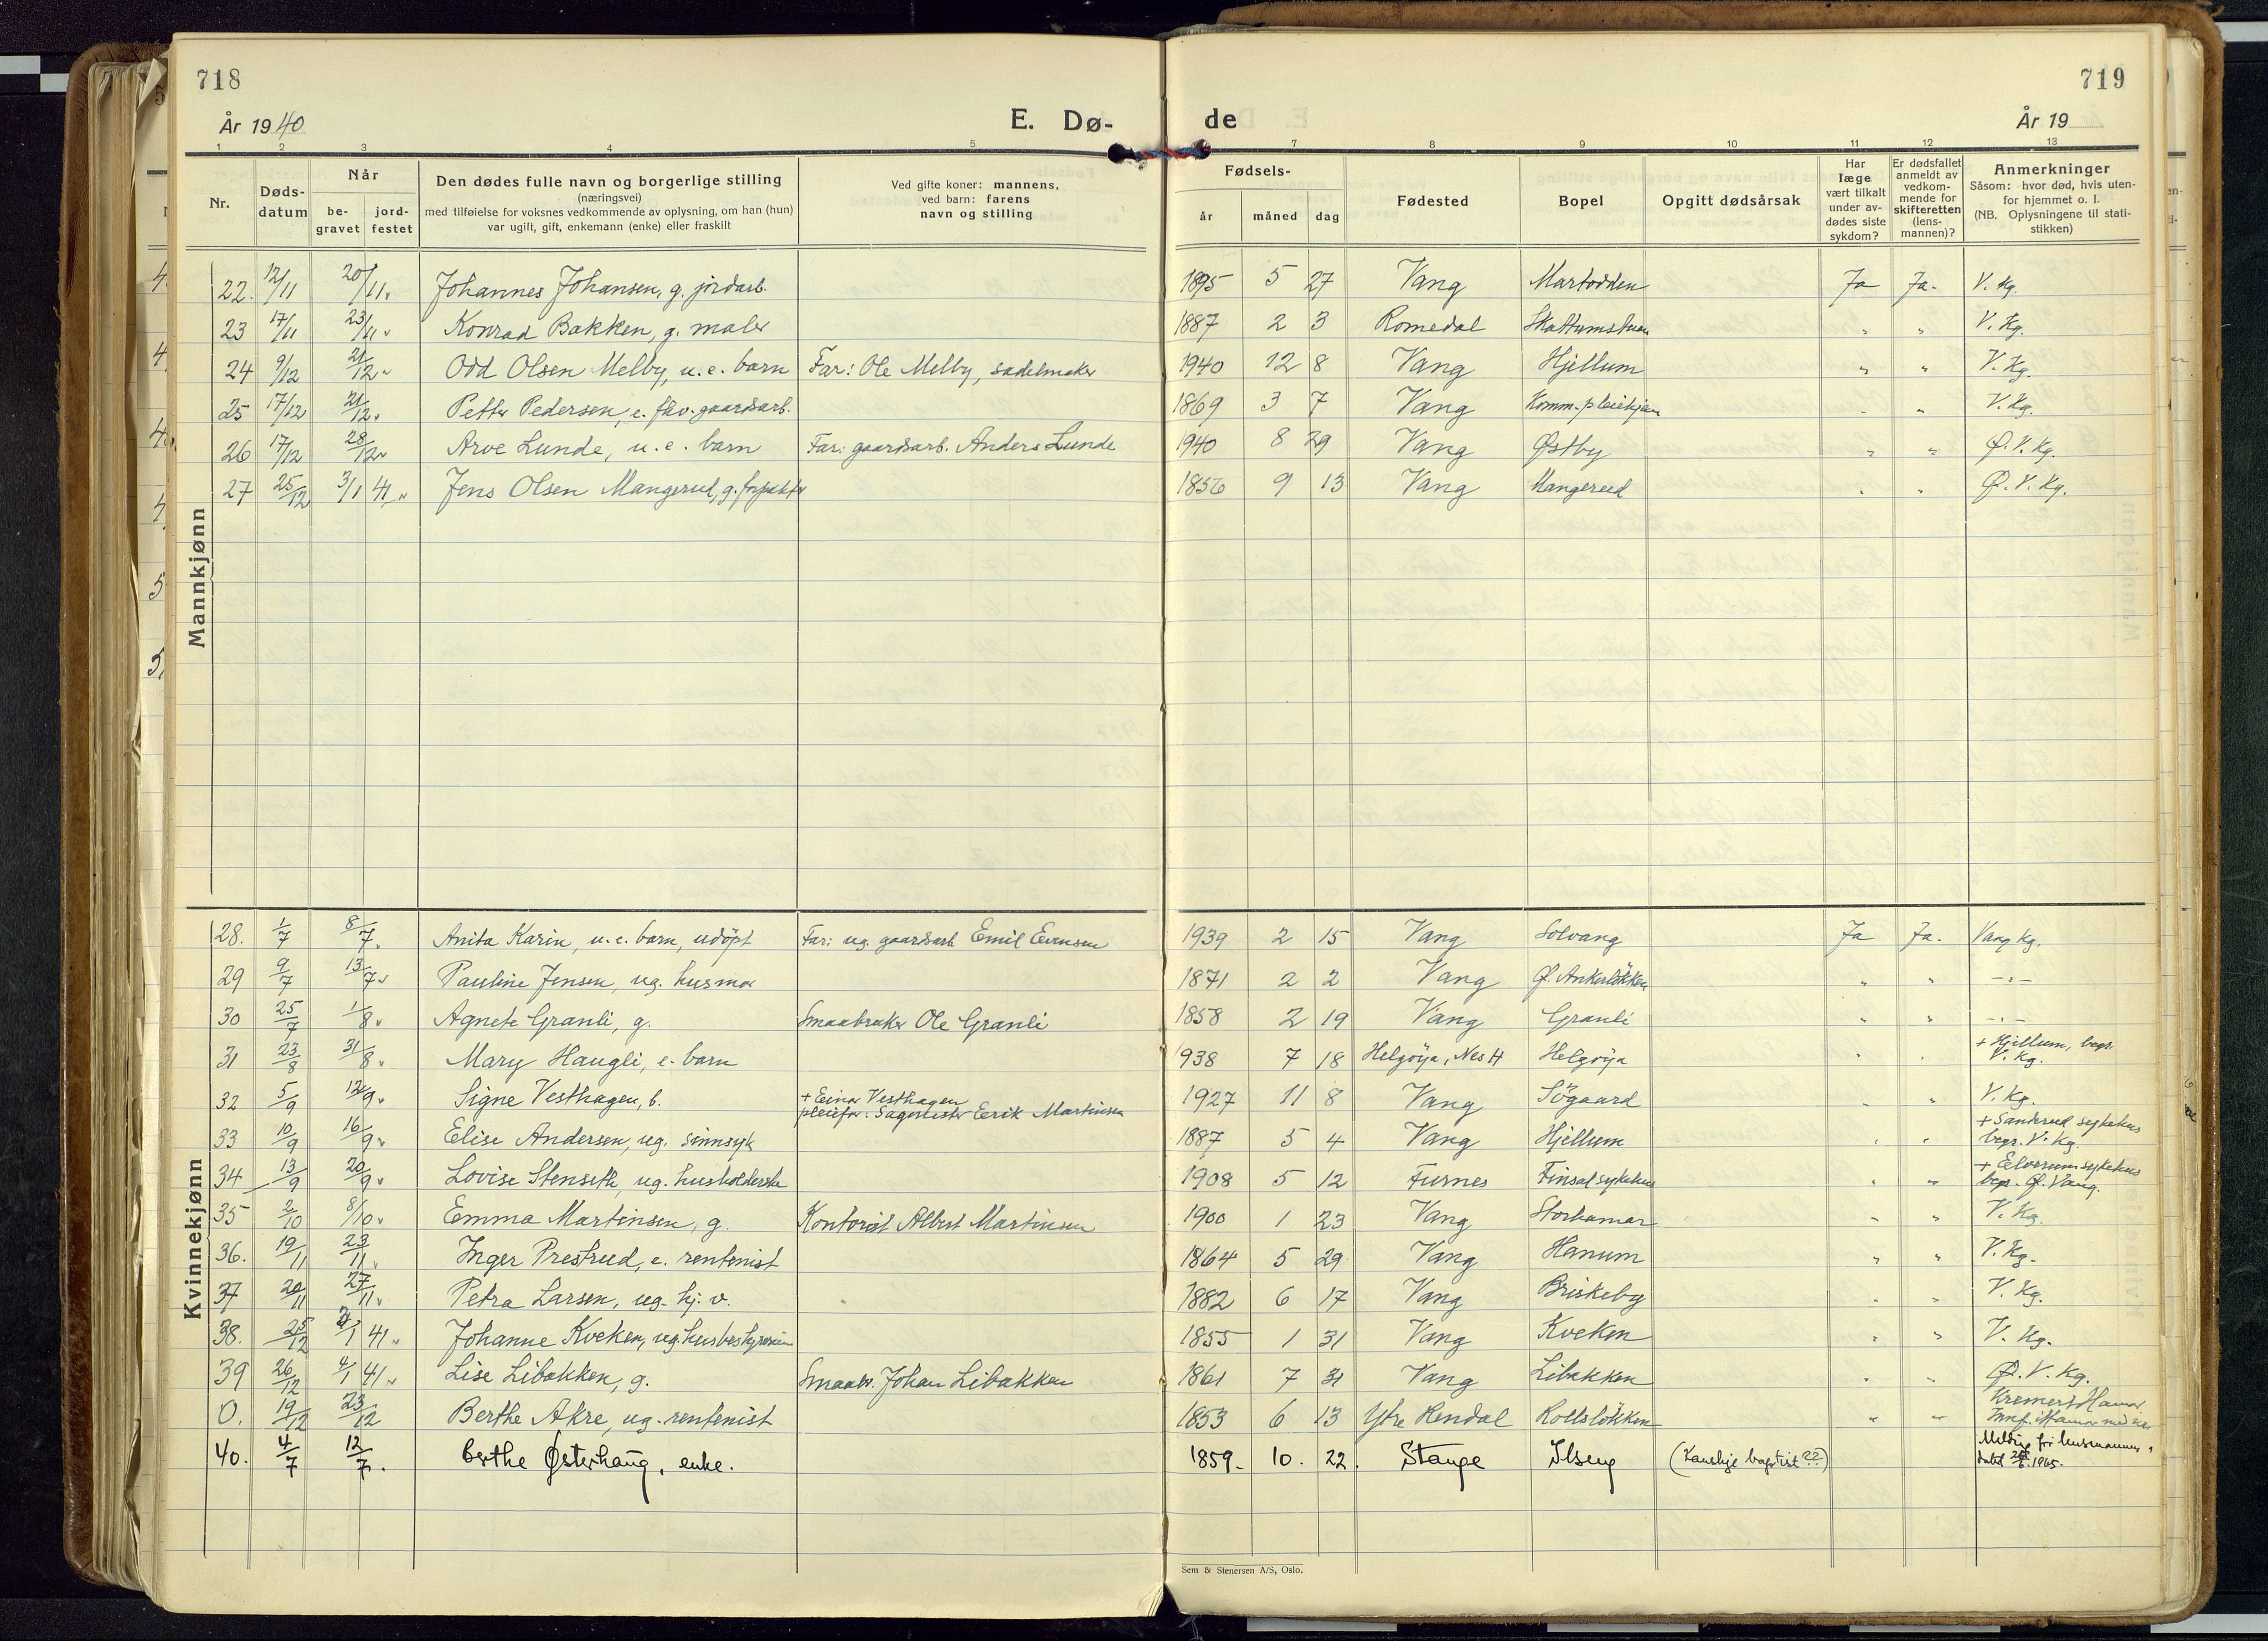 718
År 1940
E. Dø-
de
719
År 19
1 2 3 4 5 7 8 9 10 11 12 13
Nr.
Døds-
datum
Når
be-
gravet
jord-
festet
Den dødes fulle navn og borgerlige stilling
(næringsvei)
med tilføielse for voksnes vedkommende av oplysning, om han (hun)
var ugift, gift, enkemann (enke) eller fraskilt
Ved gifte koner: mannens,
ved barn: farens
navn og stilling
Fødsels-
år måned dag
Fødested
Bopel
Opgitt dødsårsak
Har
læge
vært tilkalt
under av-
dødes siste
sykdom?
Er dødsfallet
anmeldt av
vedkom-
mende for
skifteretten
(lens-
mannen)?
Anmerkninger
Såsom: hvor død, hvis uten-
for hjemmet o. l.
(NB. Oplysningene til stati-
stikken)
Mannkjønn
22. 12/11 20/11 " Johannes Johansen, g. jordarb. 1895 5 27 Vang Martodden Ja Ja. V. Kg.
23 17/11 23/11 " Konrad Bakken, g. maler 1887 2 3 Romedal Skattumstuen " " V. Kg.
24 9/12 21/12 " Odd Olsen Melby, u.e. barn Far: Ole Melby, sadelmaker 1940 12 8 Vang Hjellum " " V. Kg.
25 17/12 21/12 " Petter Pedersen, e. fhv. gaardsarb. 1869 3 7 Vang Komm. pleiehjem " " V. Kg.
26 17/12 28/12 " Arve Lunde, u.e. barn Far: gaardsarb. Anders Lunde 1940 8 29 Vang Østby " " Ø. V. Kg.
27 25/12 3/1 41 " Jens Olsen Mangerud, g. forpakter 1856 9 13 Vang Mangerud " " Ø. V. Kg.
Kvinnekjønn
28. 1/7 8/7 " Anita Karin, u.e. barn, udöpt Far: ug. gaardsarb Emil Evensen 1939 2 15 Vang Solvang Ja Ja. Vang Kg.
29 9/7 13/7 " Pauline Jensen, ug. husmor 1871 2 2 Vang Ø. Ankerløkken " " -"-
30 25/7 1/8 " Agnete Granli, g. Smaabruker Ole Granli 1858 2 19 Vang Granli " " -"-
31 23/8 31/8 " Mary Haugli, e. barn 938 7 18 Helgöya, Nes H Helgöya " " + Hjellum, begr.
V. Kg.
32 5/9 12/9 " Signe Vesthagen, b. + Einar Vesthagen
pleiefar: Sagmester Erik Martinsen 1927 11 8 Vang Sögaard " " V. Kg.
33 10/9 16/9 " Elise Andersen, ug. sinnsyk 1887 5 4 Vang Hjellum " " + Sanderud sykehus
begr. V. Kg.
34 13/9 20/9 " Lovise Stenseth, ug. husholderske 1908 5 12 Furnes Finsal sykehus " " + Elverum sykehus
begr. Ø. Vang.
35 2/10 8/10 " Emma Martinsen, g. Kontorist Albert Martinsen 1900 1 23 Vang Storhamar " " V. Kg.
36. 19/11 23/11 " Inger Prestrud, e. rentenist 1864 5 29 Vang Hanum " " V. Kg.
37 20/11 27/11 " Petra Larsen, ug. hj. v. 1882 6 17 Vang Briskeby " " V. Kg.
38. 25/12 /1 41 " Johanne Kveken, ug. husbestyrerin 1855 1 31 Vang Kveken " " V. Kg.
39 26/12 4/1 41 " Lise Libakken, g. Smaabr. Johan Libakken 1861 7 31 Vang Libakken " " Ø. V. Kg.
0. 19/12 23/12 Berthe Akre, ug. rentenist 1853 6 13 Ytre Rendal Kollsløkken " " Kremert Hamar
40. 4/7 12/7. Berthe Østerhaug, enke. 1859. 10. 22. Stange Ilseng (Kanskje baptist??)
1965.
Sem & Stenersen A/S, Oslo.